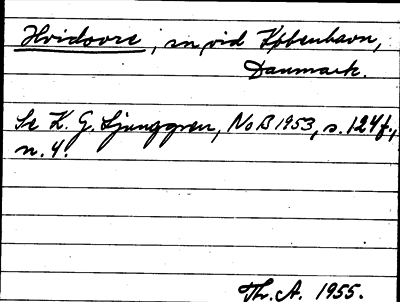 Hvidovre, sn vid København,
Danmark.
Se K. G. Ljunggren, NoB 1953, s. 124f.,
n. 4.
Th. A. 1955.